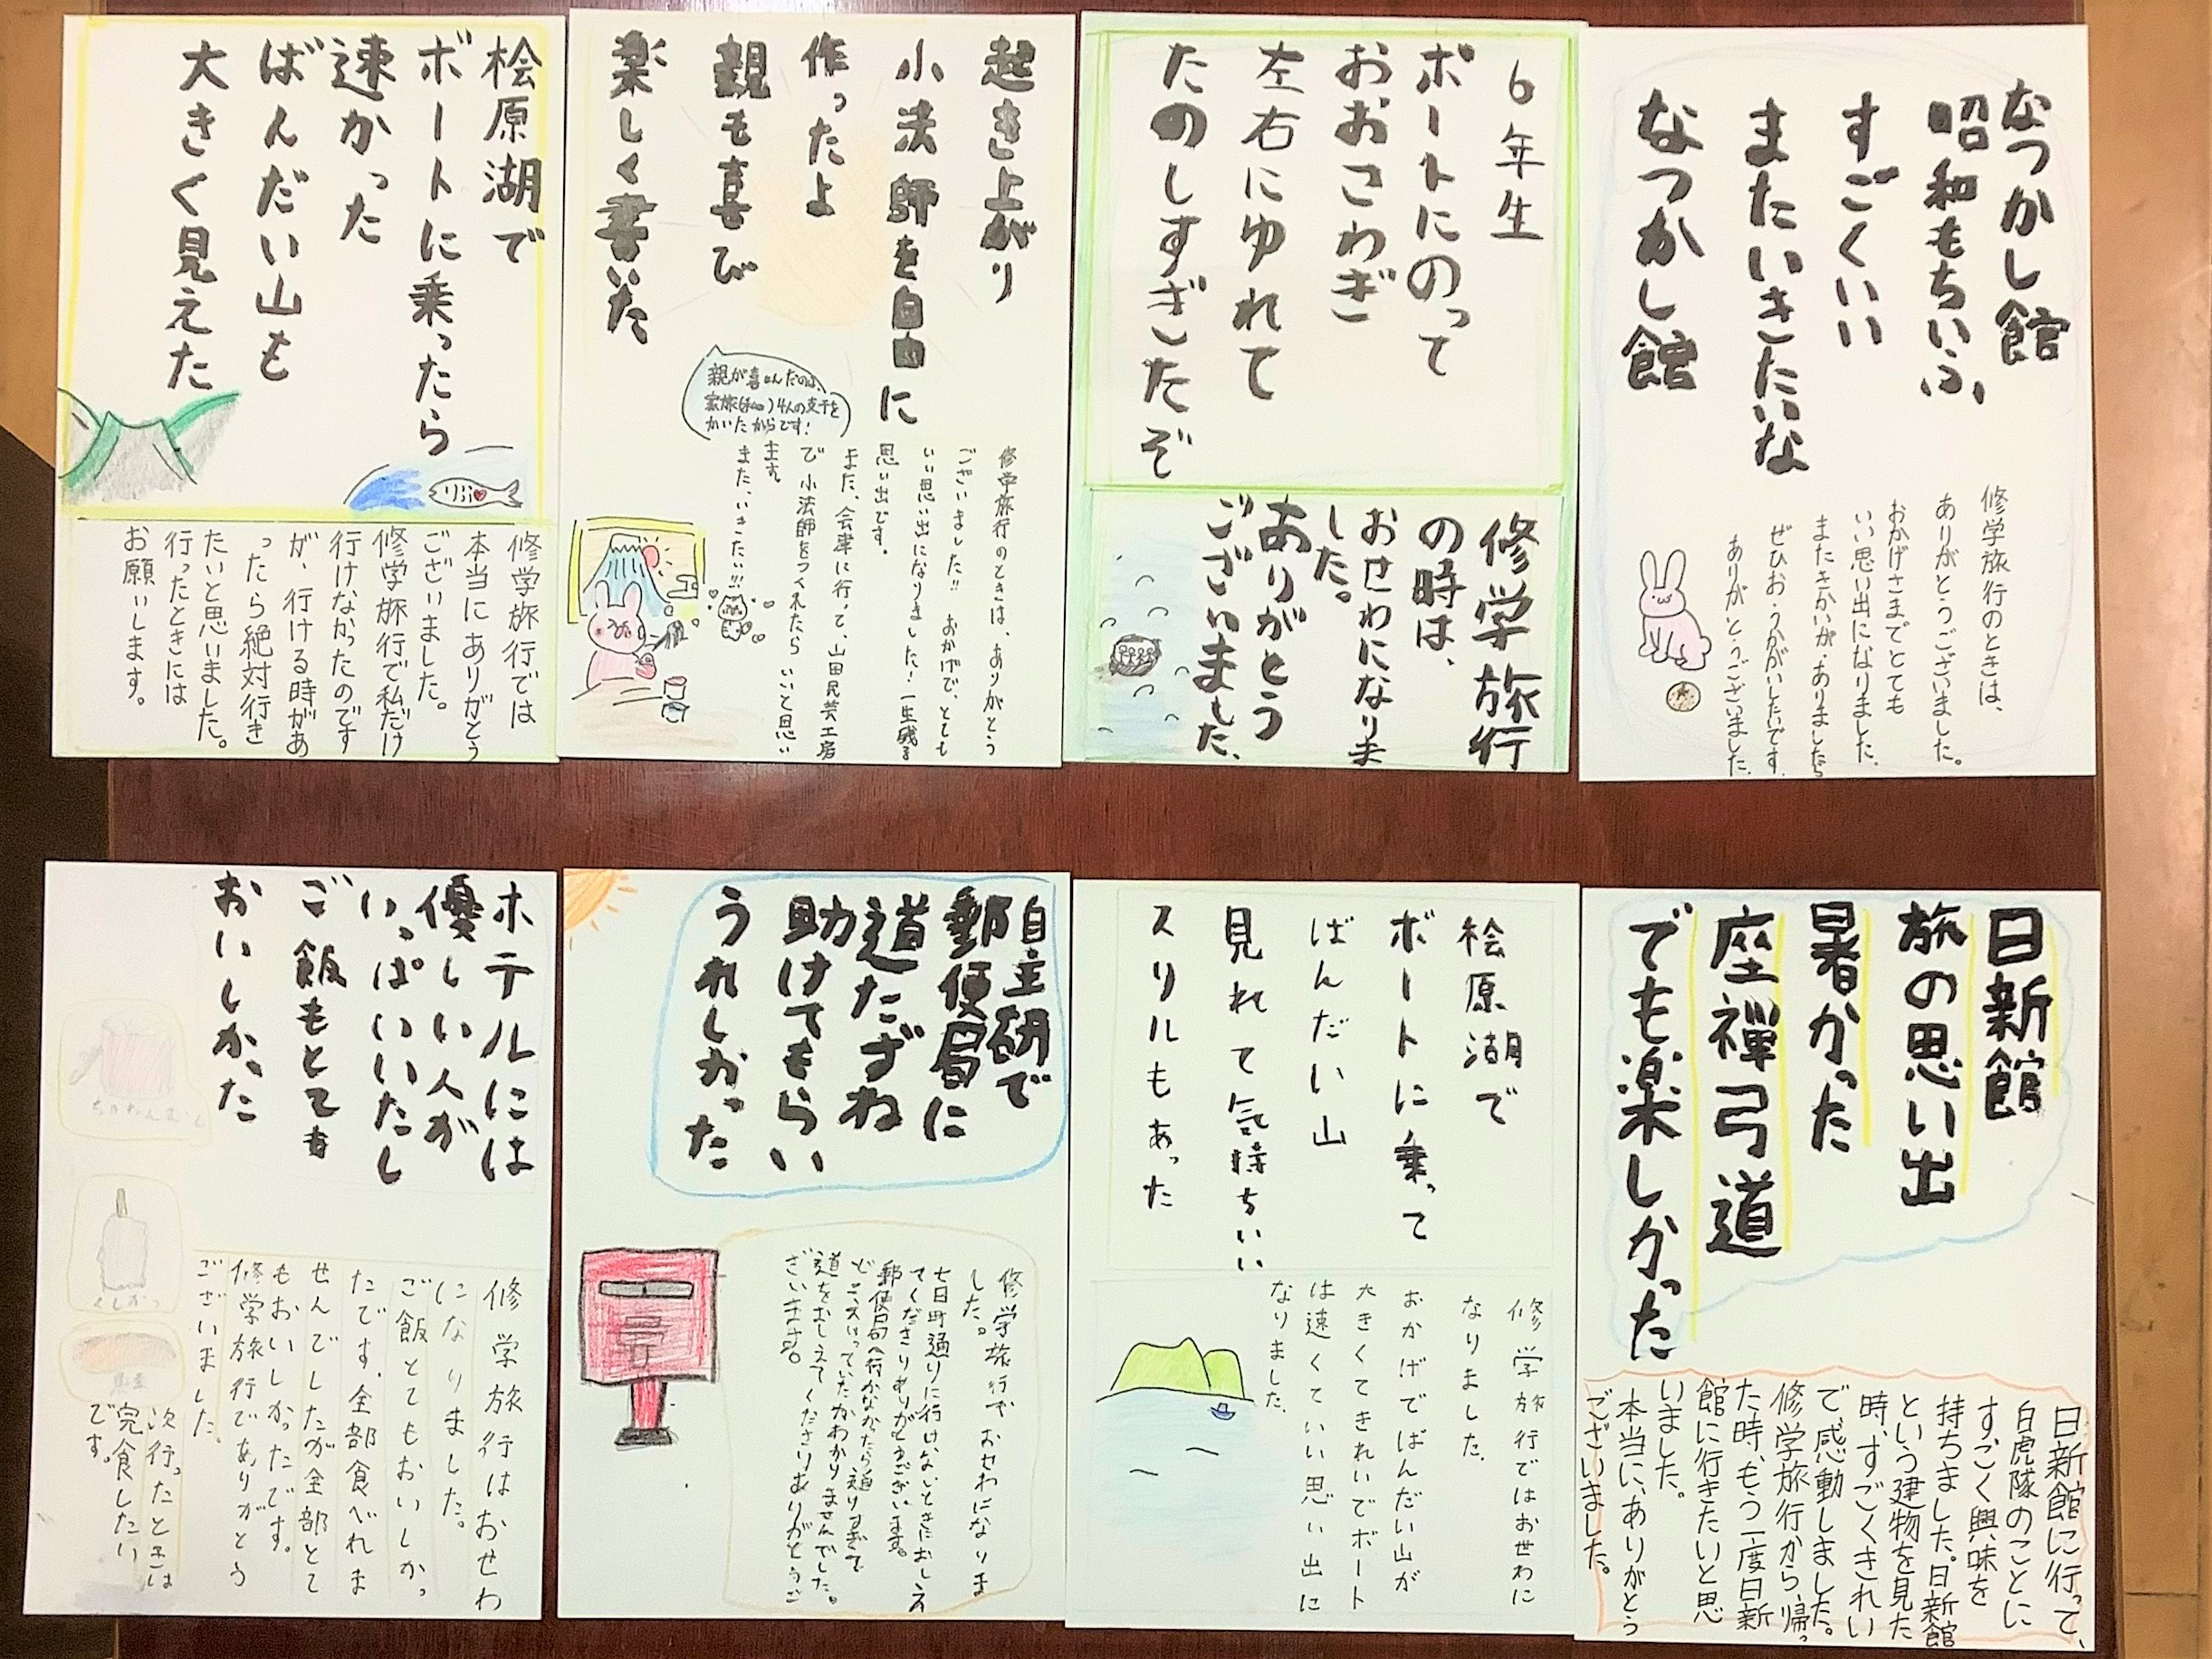 なつかし館
昭和もちいふ、
すごくいい
またいきたいな
なつかし館
修学旅行のときは、
ありがとうございました。
おかげさまでとても
いい思い出になりました。
またきかいが、ありましたら
ぜひお、うかがいしたいです。
ありが、とうございました。
6年生
ボートにのって
おおさわぎ
左右にゆれて
たのしすぎたぞ
修学旅行
の時は、
おせわになりま
した。
ありがとう
ございました、
起き上がり
小法師を自由に
作ったよ
親も喜び
楽しく書いた
親が喜んだのは、
家族4人の支干を
かいたからです!
修学旅行のときは、ありがとう
ございました!! おかげで、とても
いい思い出になりました!一生残る
思い出です。
また、会津に行って、山田民芸工房
で小法師をつくれたら いいと思い
ます。
また、いきたい!!!
桧原湖で
ボートに乗ったら
速かった
ばんだい山も
大きく見えた
修学旅行では
本当にありがとう
ございました。
修学旅行で私だけ
行けなかったのです
が、行ける時があ
ったら絶対行き
たいと思いました。
行ったときには
お願いします。
日新館
旅の思い出
暑かった
座禅弓道
でも楽しかった
日新館に行って、
白虎隊のことに
すごく興味を
持ちました。日新館
という建物を見た
時、すごくきれい
で感動しました。
修学旅行から、帰っ
た時、もう一度日新
館に行きたいと思
いました。
本当に、ありがとう
ございました。
桧原湖で
ボートに乗って
ばんだい山
見れて気持ちいい
スリルもあった
修学旅行ではお世わに
なりました。
おかげでばんだい山が
大きくてきれいでボート
は速くていい思い出に
なりました。
自主研で
郵便局に
道たずね
助けてもらい
うれしかった
修学旅行で おせわになりま
した。
七日町通りに行けないときにおしえ
てくださりありがとうございます。
郵便局へ行かなかったら通りすぎて
どこスいっていたかわかりませんでした。
道をおしえてくださりありがとうご
ざいます。
ホテルには
優しい人が
いっぱいいたし
ご飯もとても
おいしかった
ちゃわんむし
くしかつ
修学旅行はおせわ
になりました。
ご飯とてもおいしかっ
たです。全部食べれま
せんでしたが全部とて
もおいしかったです。
修学旅行でありがとう
ございました。
次行ったときは
完食したい
です。